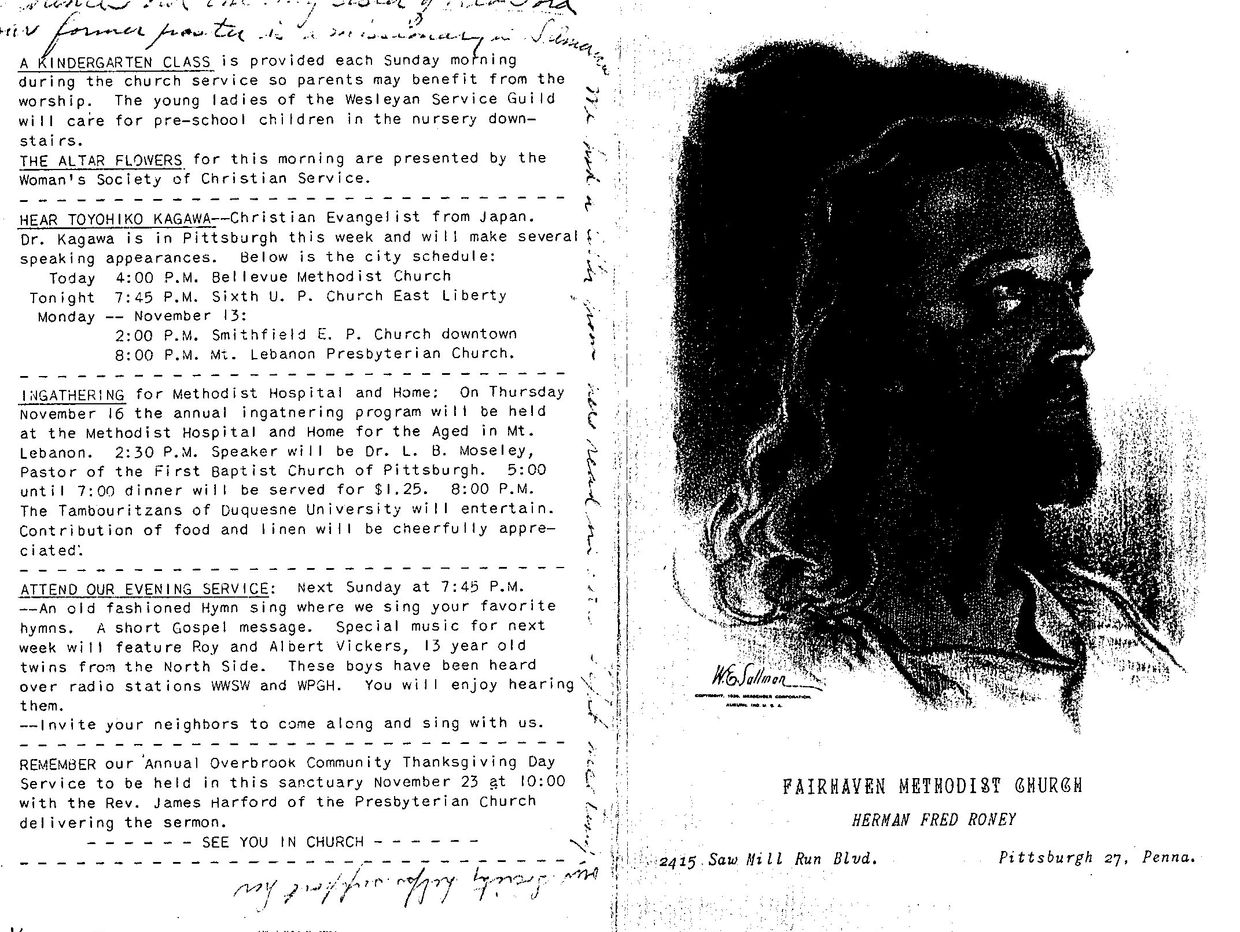 former pastor is a missionary in
A KINDERGARTEN CLASS is provided each Sunday morning
during the church service so parents may benefit from the
worship. The young ladies of the Wesleyan Service Guild
will care for pre-school children in the nursery down-
stairs.
THE ALTAR FLOWERS for this morning are presented by the
Woman's Society of Christian Service.
HEAR TOYOHIKO KAGAWA--Christian Evangelist from Japan.
Dr. Kagawa is in Pittsburgh this week and will make several
speaking appearances. Below is the city schedule:
Today 4:00 P.M. Bellevue Methodist Church
Tonight 7:45 P.M. Sixth U. P. Church East Liberty
Monday -- November 13:
2:00 P.M. Smithfield E. P. Church downtown
8:00 P.M. Mt. Lebanon Presbyterian Church.
INGATHERING for Methodist Hospital and Home: On Thursday
November 16 the annual ingatnering program will be held
at the Methodist Hospital and Home for the Aged in Mt.
Lebanon. 2:30 P.M. Speaker will be Dr. L. B. Moseley,
Pastor of the First Baptist Church of Pittsburgh. 5:00
until 7:00 dinner will be served for $1.25. 8:00 P.M.
The Tambouritzans of Duquesne University will entertain.
Contribution of food and linen will be cheerfully appre-
ciated.
ATTEND OUR EVENING SERVICE: Next Sunday at 7:45 P.M.
--An old fashioned Hymn sing where we sing your favorite
hymns. A short Gospel message. Special music for next
week will feature Roy and Albert Vickers, 13 year old
twins from the North Side. These boys have been heard
over radio stations WWSW and WPGH. You will enjoy hearing
them.
--Invite your neighbors to come along and sing with us.
REMEMBER our Annual Overbrook Community Thanksgiving Day
Service to be held in this sanctuary November 23 at 10:00
with the Rev. James Harford of the Presbyterian Church
delivering the sermon.
- - - - - - SEE YOU IN CHURCH - - - - - -
Society helps support her
W.E. Sallman
COPYRIGHT, MESSENGER CORPORATION
AUBURN, IND. U. S. A.
FAIRHAVEN METHODIST CHURCH
HERMAN FRED RONEY
2415 Saw Mill Run Blvd. Pittsburgh 27, Penna.